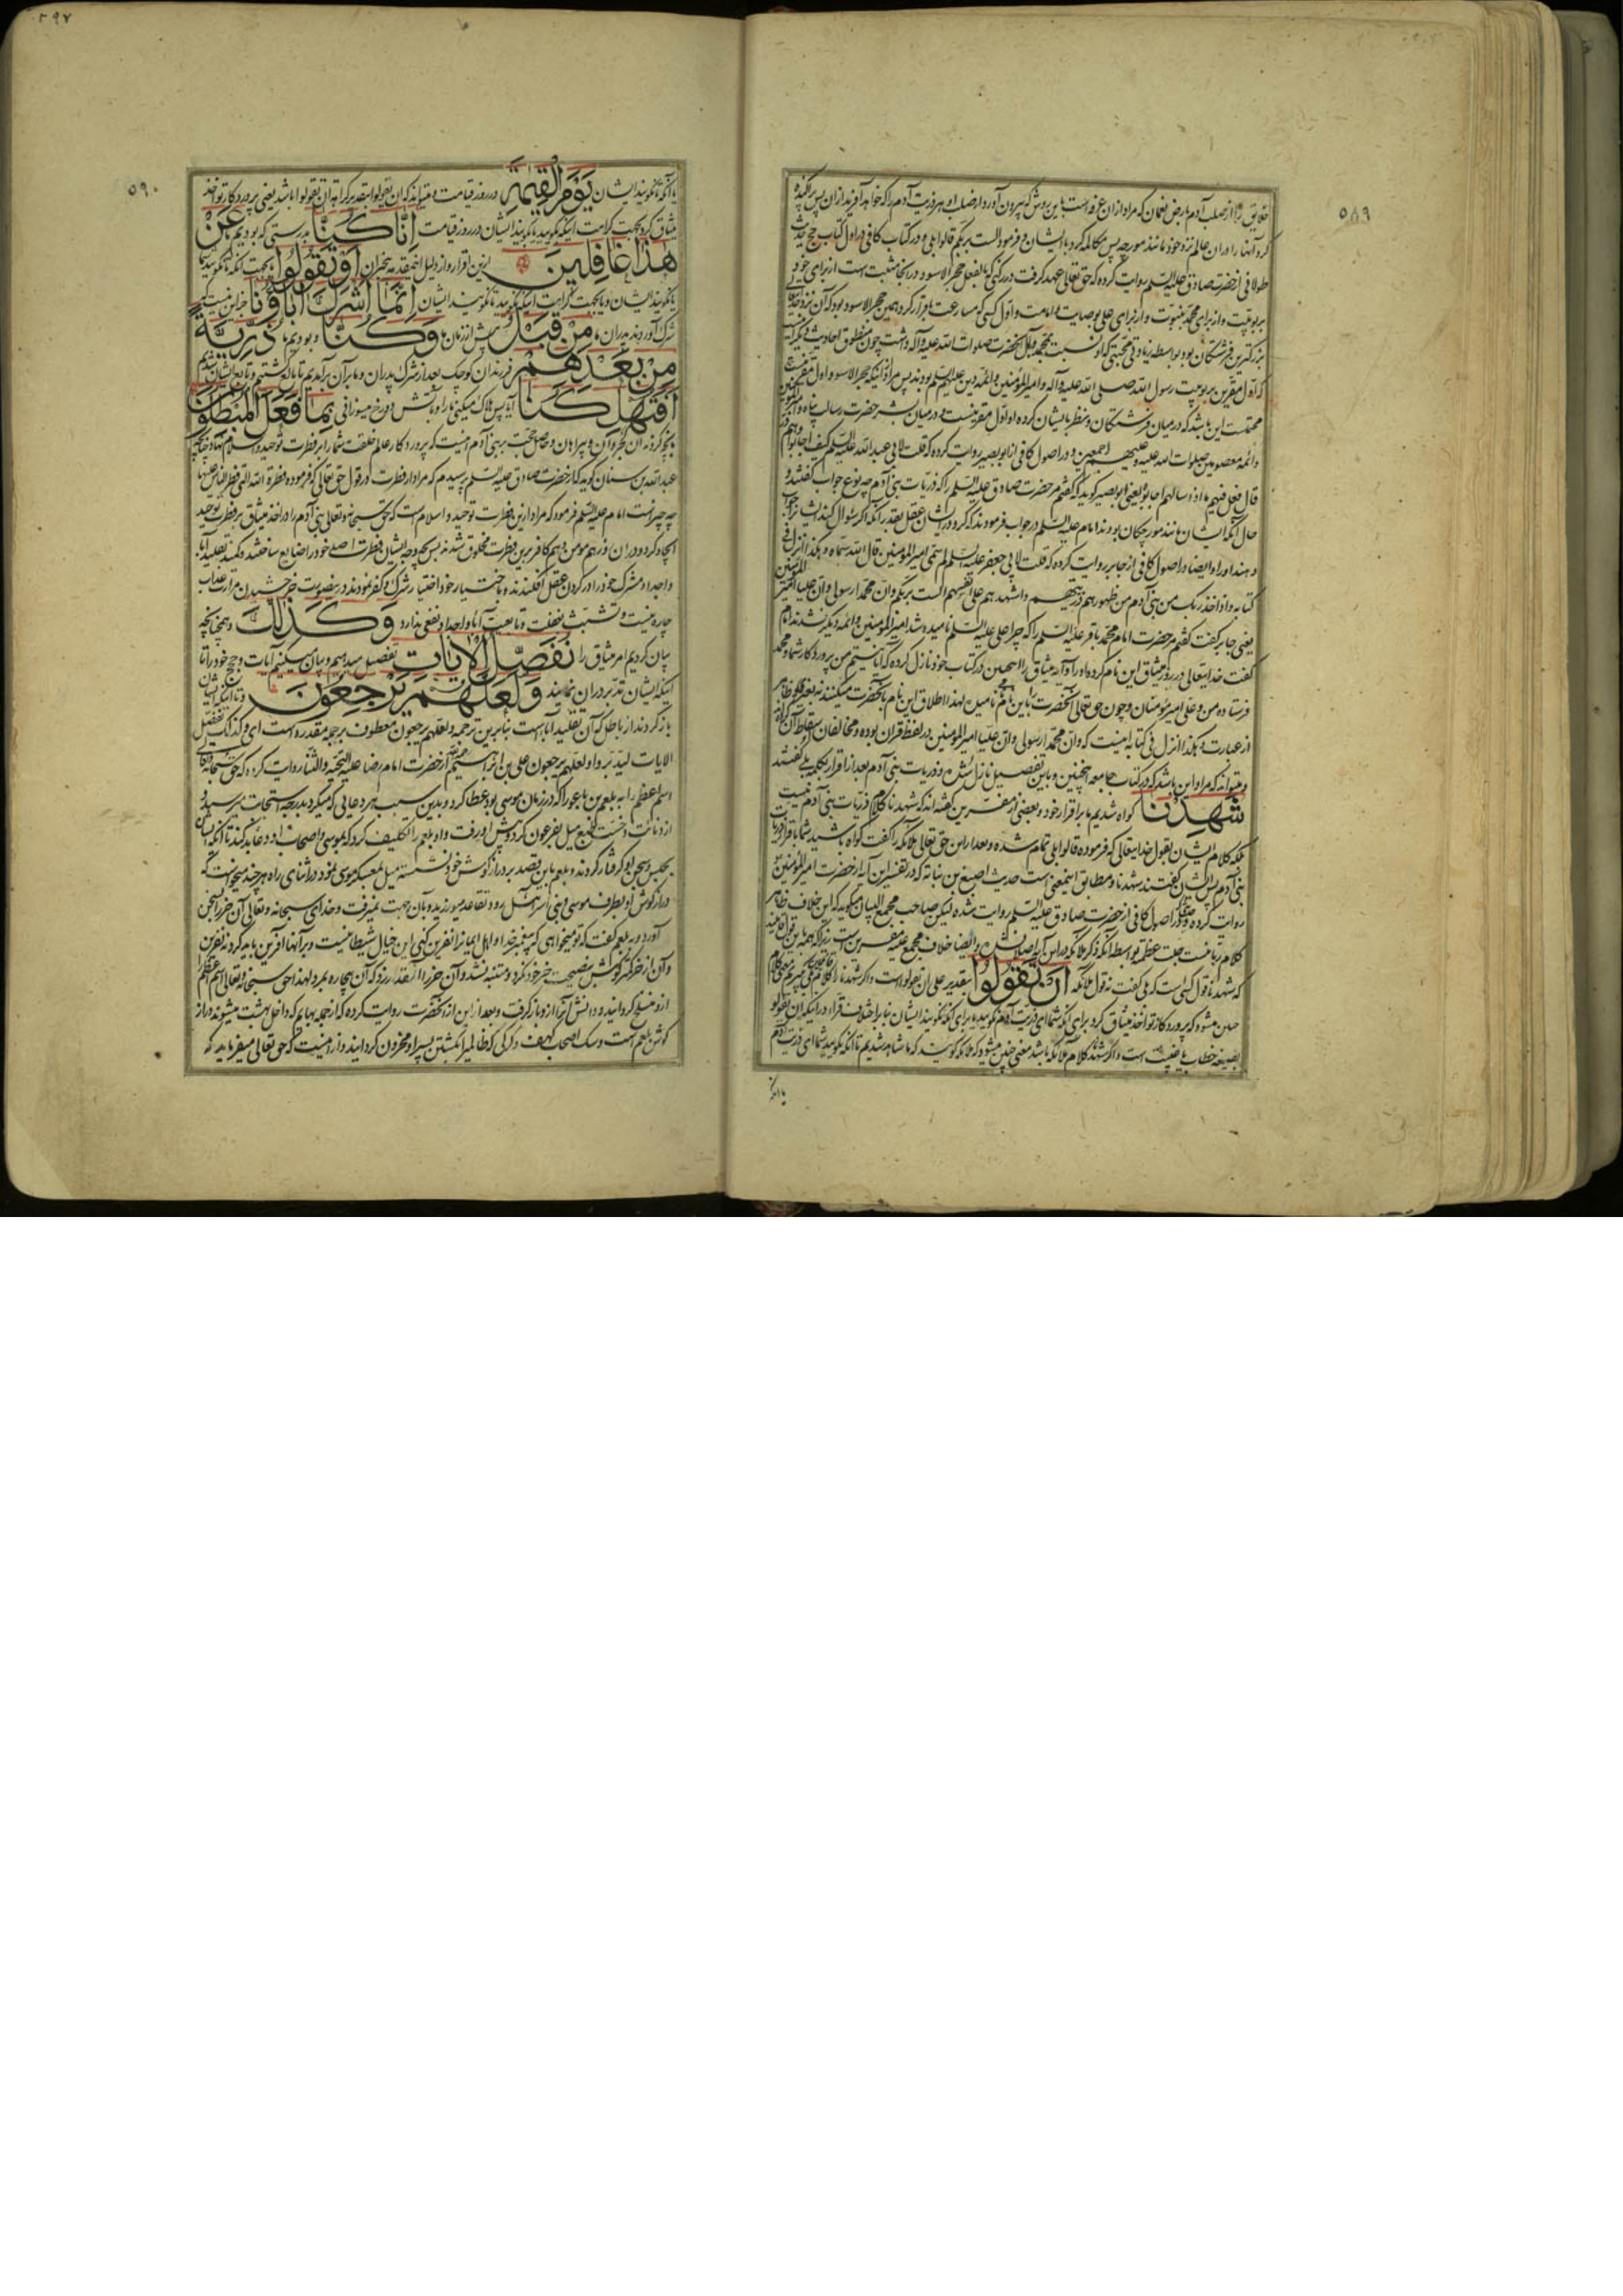 ۵۸۹
خلایق را از صلب آدم بارض نعمان که مراد از آن عرفه است باین روش که بیرون آورد از صلب او هر ذریت آدم را که خواهد آفرید از آن پس پراکنده
کرد آنها را در آن عالم نزد خود مانند مورچه پس مکالمه کرد با ایشان و فرمود الست بربکم قالوا بلی و در کتاب کافی در اول کتاب حج حدیث
طولانی از حضرت صادق علیه السلم روایت کرده که حق تعالی عهد گرفت در رکنی که بالفعل حجر الاسود در آنجا مثبت است از برای خود
بربوبیت و از برای محمد بنبوت و از برای علی بوصایت و امامت و اول کسی که مسارعت باقرار کرد همین حجر الاسود بود که آن نزد خدایتعالی
بزرگترین فرشتگان بود بواسطه زیادتی محبتی که او نسبت بمحمد و آل آنحضرت صلوات الله علیه و آله داشت چون منطوق احادیث دیگر اینست
که اول مقرین بربوبیت رسول الله صلی الله علیه و آله و امیر المؤمنین و ائمه دین علیهم السلم بودند پس مراد از اینکه حجر الاسود اول مقر است
محتمل است این باشد که در میان فرشتگان و بنظر بایشان کرده او اول مقر نیست و در میان بشر حضرت رسالت پناه و امیر المؤمنین
و ائمه معصومین صلوات الله علیه و علیهم اجمعین و در اصول کافی از ابو بصیر روایت کرده که قلت لابی عبد الله علیه السلم کیف اجابوا و هم ذر
قال جعل فیهم ما اذا سالهم اجابوا یعنی ابو بصیر گوید که گفتم مر حضرت صادق علیه السلم را که ذریات بنی آدم چه نوع جواب گفتند و
حال آنکه ایشان مانند مورچگان بودند امام علیه السلم در جواب فرمودند که کرد در ایشان عقل بقدر آنکه اگر سؤال کند ایشانرا جواب
دهند او را و ایضا در اصول کافی از جابر روایت کرده که قلت لابی جعفر علیه السلم لم سمی امیر المؤمنین قال الله سماه و هکذا انزل فی
کتابه و اذ اخذ ربک من بنی آدم من ظهورهم ذریتهم و اشهدهم علی انفسهم الست بربکم و ان محمدا رسولی و ان علیا امیر المؤمنین
یعنی جابر گفت گفتم مر حضرت امام محمد باقر علیه السلم را که چرا علی علیه السلم نامیده شد امیر المؤمنین و ائمه دیگر نشدند امام
گفت خدایتعالی در روز میثاق این نام کرده او را و آیه میثاق را همین در کتاب خود نازل کرده که آیا نیستم من پروردگار شما و محمد
فرستاده من و علی امیر مؤمنان و چون حق تعالی آنحضرت را باین نام نامیده لهذا اطلاق این نام بآنحضرت میکنند نه بغیر او ظاهر
از عبارت و هکذا انزل فی کتابه اینست که و ان محمدا رسولی و ان علیا امیر المؤمنین در لفظ قران بوده و مخالفان اسقاط آن کرده
و میتواند که مراد این باشد که در کتاب جامعه همچنین و باین تفصیل نازل شده و ذریات بنی آدم بعد از اقرار بکلمه بلی گفتند
شَهِدْنَا گواه شدیم ما بر اقرار خود و بعضی از مفسرین گفته اند که شهدنا کلام ذریات بنی آدم نیست
بلکه کلام ایشان بقول خدایتعالی که فرموده قالوا بلی تمام شده و بعد از این حق تعالی ملائکه را گفت گواه باشید شما باقرار ذریات
بنی آدم پس ایشان گفتند شهدنا و مطابق اینمعنی است حدیث اصبغ بن نباته که در تفسیر این آیه از حضرت امیر المؤمنین
روایت کرده و در اصول کافی از حضرت صادق علیه السلم روایت شده لیکن صاحب مجمع البیان میگوید که این خلاف ظاهر
کلام
که شهدنا قول کسی است که بلی گفت نه قول ملائکه أَنْ تَقُولُوا بتقدیر علی ان تقولوا است و اگر شهدنا
چنین میشود که پروردگار تو اخذ میثاق کرد برای آنکه شما ای ذریت آدم نگویید یا برای آنکه نگویند ایشان بنا بر اختلاف قراء در اینکه ان تقولوا
بصیغه خطاب یا غیبت است و اگر شهدنا کلام ملائکه باشد معنی چنین میشود که ملائکه گویند که ما شاهد شدیم تا آنکه نگویید شما ای ذریت آدم
یا آنکه
۲۹۷
۵۹۰
یا آنکه نگویند ایشان يَوْمَ الْقِيٰمَةِ در روز قیامت و میتواند که ان یقولوا بتقدیر کراهة ان یقولوا باشد یعنی پروردگار تو اخذ
میثاق کرد بجهت کراهت اینکه بگویید یا بگویند ایشان در روز قیامت إِنَّا كُنَّا بدرستی که بودیم ما عَنْ
هٰذَا غَافِلِينَ ازین اقرار و از دلیل اینمقدمه بیخبران أَوْ تَقُولُوا بجهت آنکه تا نگویید شما
یا نگویند ایشان و یا بجهت کراهت اینکه بگویید یا بگویند ایشان إِنَّمَا أَشْرَكَ آبَاؤُنَا جز این نیست که
شرک آوردند پدران ما مِنْ قَبْلُ پیش از زمان ما وَكُنَّا و بودیم ما ذُرِّيَّةً
مِنْ بَعْدِهِمْ فرزندان کوچک بعد از شرک پدران و ما بر آن برآمدیم تا بالغ گشتیم و تابع ایشان شدیم
أَفَتُهْلِكُنَا آیا پس هلاک میکنی ما را و بآتش دوزخ میسوزانی بِمَا فَعَلَ الْمُبْطِلُونَ
بآنچه کردند آن کجروان و بیراهان و حاصل حجت بر بنی آدم اینست که پروردگار عالم خلقت شما را بر فطرت توحید و اسلام نهاد چنانچه
عبد الله بن سنان گوید که از حضرت صادق علیه السلم پرسیدم که مراد از فطرت در قول حق تعالی که فرموده فطرة الله التی فطر الناس علیها
چه چیز است امام علیه السلم فرمود که مراد ازین فطرت توحید و اسلام است که حق سبحانه و تعالی بنی آدم را در اخذ میثاق بر فطرت توحید
ایجاد کرد و در آن روز هم مومن و هم کافر برین فطرت مخلوق شدند پس بچه وجه ایشان فطرت اصلی خود را ضایع ساختند و بمحض تقلید آبا
و اجداد مشرک خود را از کردن عقل افکندند و باختیار خود اختیار شرک و کفر نمودند درینصورت جز چشیدن مر از عذاب
چاره نیست و تشبث بغفلت و تابعیت آبا و اجداد نفعی ندارد وَكَذٰلِكَ و همچنانچه
بیان کردیم امر میثاق را نُفَصِّلُ الْآيَاتِ تفصیل میدهیم و بیان میکنیم آیات و حجج خود را تا
اینکه ایشان تدبر در آن نمایند وَلَعَلَّهُمْ يَرْجِعُونَ و تا اینکه ایشان
باز گردند از باطل که آن تقلید آبا است بنا برین ترجمه و لعلهم یرجعون معطوف بر جمله مقدره است ای و کذلک نفصل
الآیات لیتدبروا و لعلهم یرجعون علی بن ابراهیم از حضرت امام رضا علیه التحیه و الثنا روایت کرده که حق سبحانه و تعالی
اسم اعظم را به بلعم بن باعورا که در زمان موسی بود عطا کرد و بدین سبب هر دعایی که میکرد بدرجه استجابت میرسید و
از دنائت و خست طبع میل بفرعون کرد و پیش او رفت و او بلعم را تکلیف کرد که بموسی و اصحاب او دعا بد کند تا آنکه ایشان
بحبس و سجن او گرفتار گردند و بلعم باین قصد بر درازگوش خود نشسته میل بمعسکر موسی نمود در اثنای راه هر چند میخواست که
درازگوش او بطرف موسی و بنی اسرائیل رود تقاعد میورزید و بآن جهت نمیرفت و خدای سبحانه و تعالی آن خر را بسخن
آورد و به بلعم گفت که تو میخواهی که پیغمبر خدا و اهل ایمانرا نفرین کنی این خیال شیطانیست و بر آنها آفرین باید کرد نه نفرین
و آن از خر کمتر گوش بنصیحت خر خود نکرد و متنبه نشد و آن خر را آنقدر زد که آن بیچاره بمرد لهذا حق سبحانه و تعالی اسم اعظم را
ازو منسلخ گردانید و دانش آنرا ازو باز گرفت و بعد از این از آنحضرت روایت کرده که از جمله بهایم که داخل بهشت میشوند دراز
گوش بلعم است و سگ اصحاب کهف و گرگی که ظالمیرا بکشتن پسر او محزون گردانید و از اینست که حق تعالی میفرماید که